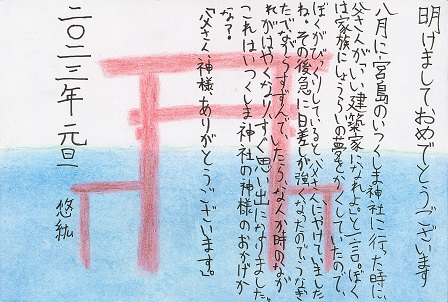 明けましておめでとうございます
八月に宮島のいつくしま神社に行った時に、
父さんが「いい建築家になれよ」と一言。ぼく
は家族にしょうらいの夢をかくしていたので、
ぼくがびっくりしていると、父さんにやけていました
ね。その後急に日差しが強くなったので、うなぎ
たべながらすずんでしたら、なんか時のなが
れがはやくかわり、すぐ思い出になりました。
これはいつくしま神社の神様のおかげか
な?
「父さん、神様、ありがとうございます。」
二〇二三年 元旦
悠紘